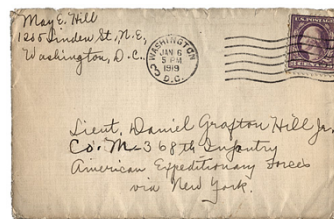 May E. Hill
1205 Linden St., N.E.,
Washington, D.C.
WASHINGTON
JAN 6
5 PM
1919
D.C.
U.S. POSTAGE
Lieut. Daniel Grafton Hill Jr.,
Co. M - 368th Infantry
American Expeditionary Forces
via New York.